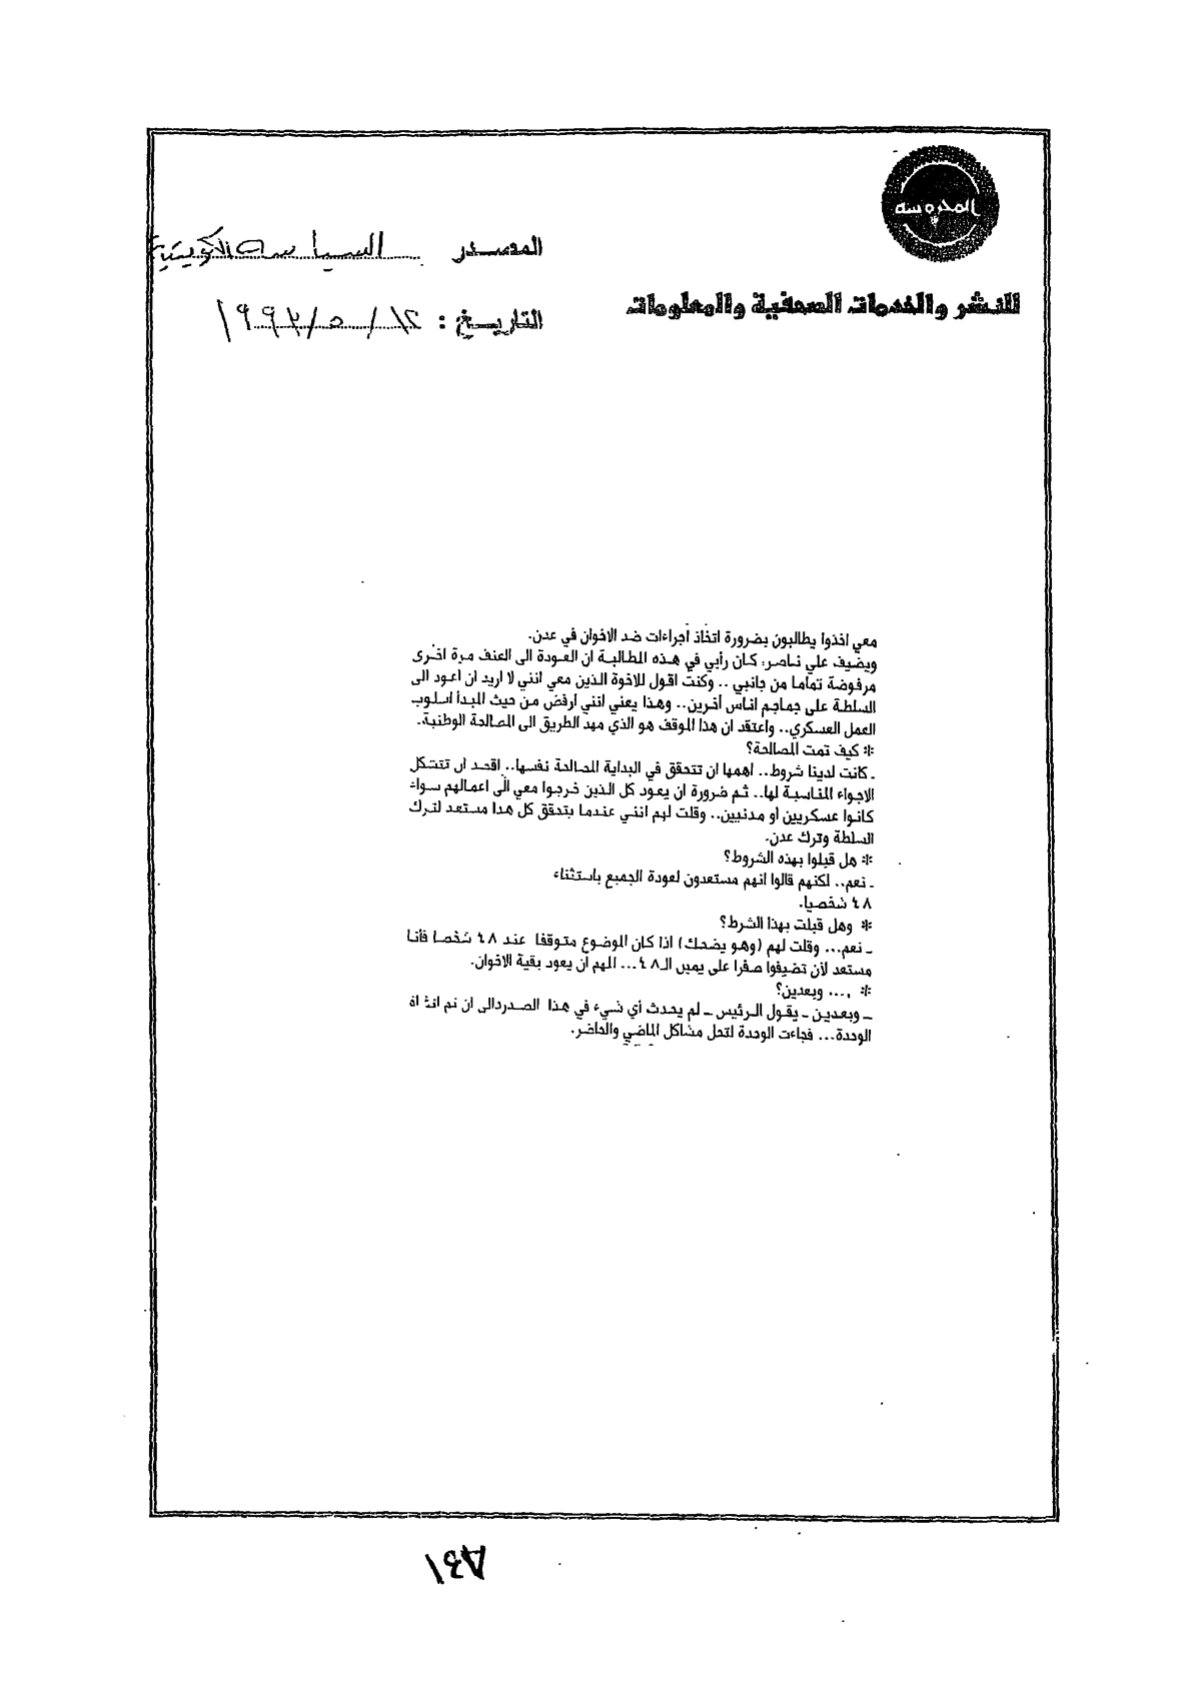 المحروسة
المصدر السياسة الكويتية
للنشر والخدمات الصحفية والمعلومات
التاريخ : ١٢ / ٥ / ١٩٩٢
معي اخذوا يطالبون بضرورة اتخاذ اجراءات ضد الاخوان في عدن.
ويضيف علي ناصر: كان رأيي في هذه المطالبة ان العودة الى العنف مرة اخرى
مرفوضة تماما من جانبي .. وكنت اقول للاخوة الذين معي انني لا اريد ان اعود الى
السلطة على جماجم اناس آخرين.. وهذا يعني انني ارفض من حيث المبدأ اسلوب
العمل العسكري.. واعتقد ان هذا الموقف هو الذي مهد الطريق الى المصالحة الوطنية.
* كيف تمت المصالحة؟
ـ كانت لدينا شروط.. اهمها ان تتحقق في البداية المصالحة نفسها.. اقصد ان تتشكل
الاجواء المناسبة لها.. ثم ضرورة ان يعود كل الذين خرجوا معي الى اعمالهم سواء
كانوا عسكريين او مدنيين.. وقلت لهم انني عندما يتحقق كل هذا مستعد لترك
السلطة وترك عدن.
* هل قبلوا بهذه الشروط؟
ـ نعم.. لكنهم قالوا انهم مستعدون لعودة الجميع باستثناء
٤٨ شخصيا.
* وهل قبلت بهذا الشرط؟
ـ نعم... وقلت لهم (وهو يضحك) اذا كان الموضوع متوقفا عند ٤٨ شخصا فأنا
مستعد لأن تضيفوا صفرا على يمين الـ٤٨... المهم ان يعود بقية الاخوان.
* .... وبعدين؟
ـ وبعدين ـ يقول الرئيس ـ لم يحدث أي شيء في هذا الصدد الى ان تم
الوحدة... فجاءت الوحدة لتحل مشاكل الماضي والحاضر.